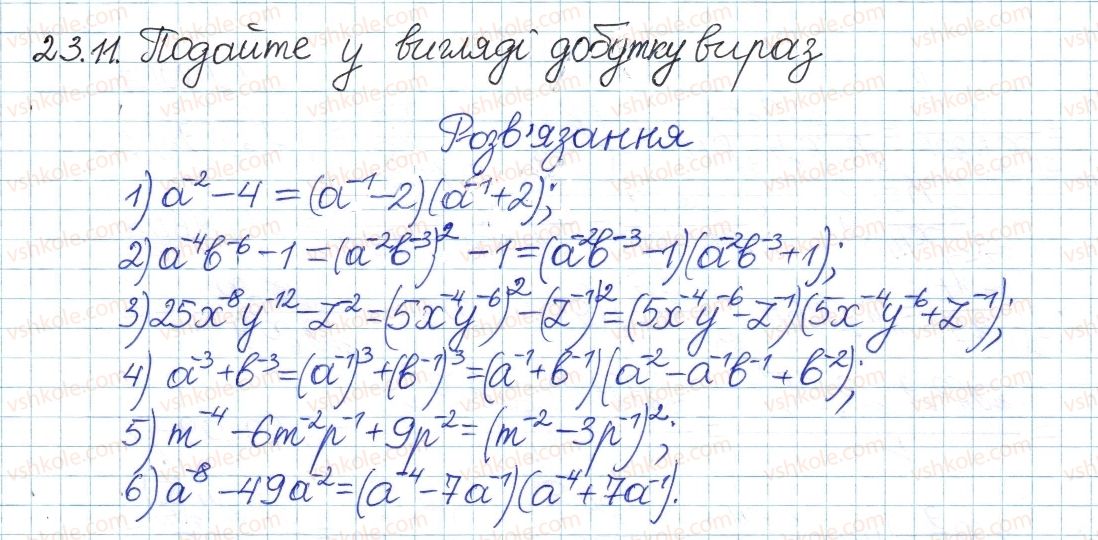 23.11. Подайте у вигляді добутку вираз
Розв'язання
1) a⁻² – 4 = (a⁻¹ – 2)(a⁻¹ + 2);
2) a⁻⁴b⁻⁶ – 1 = (a⁻²b⁻³)² – 1 = (a⁻²b⁻³ – 1)(a⁻²b⁻³ + 1);
3) 25x⁻⁸y⁻¹² – z⁻² = (5x⁻⁴y⁻⁶)² – (z⁻¹)² = (5x⁻⁴y⁻⁶ – z⁻¹)(5x⁻⁴y⁻⁶ + z⁻¹);
4) a⁻³ + b⁻³ = (a⁻¹)³ + (b⁻¹)³ = (a⁻¹ + b⁻¹)(a⁻² – a⁻¹b⁻¹ + b⁻²);
5) m⁻⁴ – 6m⁻²p⁻¹ + 9p⁻² = (m⁻² – 3p⁻¹)²;
6) a⁻⁸ – 49a⁻² = (a⁻⁴ – 7a⁻¹)(a⁻⁴ + 7a⁻¹).